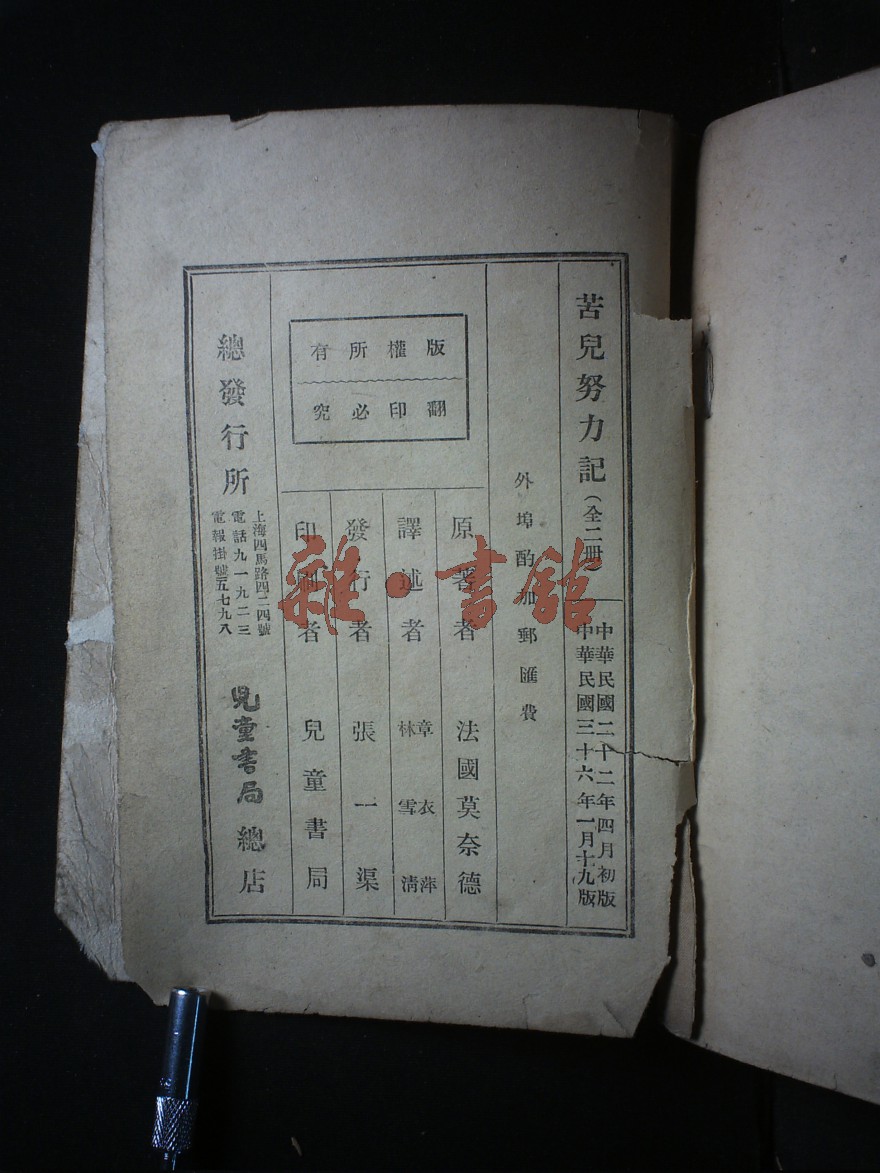 苦兒努力記（全二冊）
中華民國二十二年四月初版
中華民國三十六年一月十九版
外埠酌加郵匯費
版權所有
翻印必究
原著者 法國莫奈德
譯述者 章衣萍 林雪清
發行者 張一渠
印刷者 兒童書局
總發行所
上海四馬路四二四號
電話九一九二三
電報掛號五七九八
兒童書局總店
雜·書館